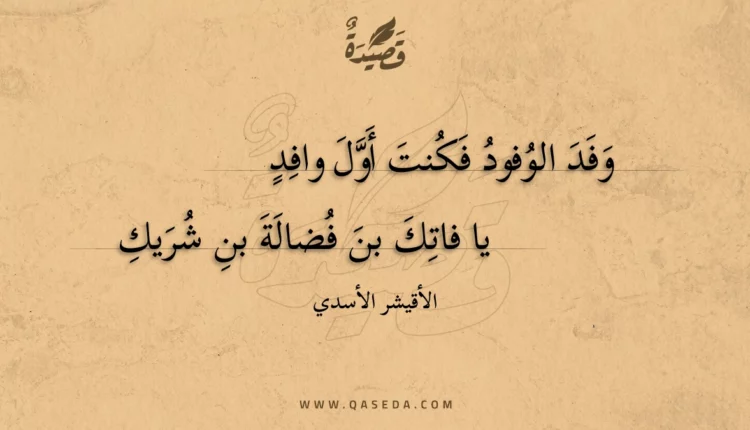 قَصِيدَةٌ
وَفَدَ الوُفودُ فَكُنتَ أَوَّلَ وافِدٍ
يا فاتِكَ بنَ فُضالَةَ بنِ شُرَيكِ
الأقيشر الأسدي
WWW.QASEDA.COM